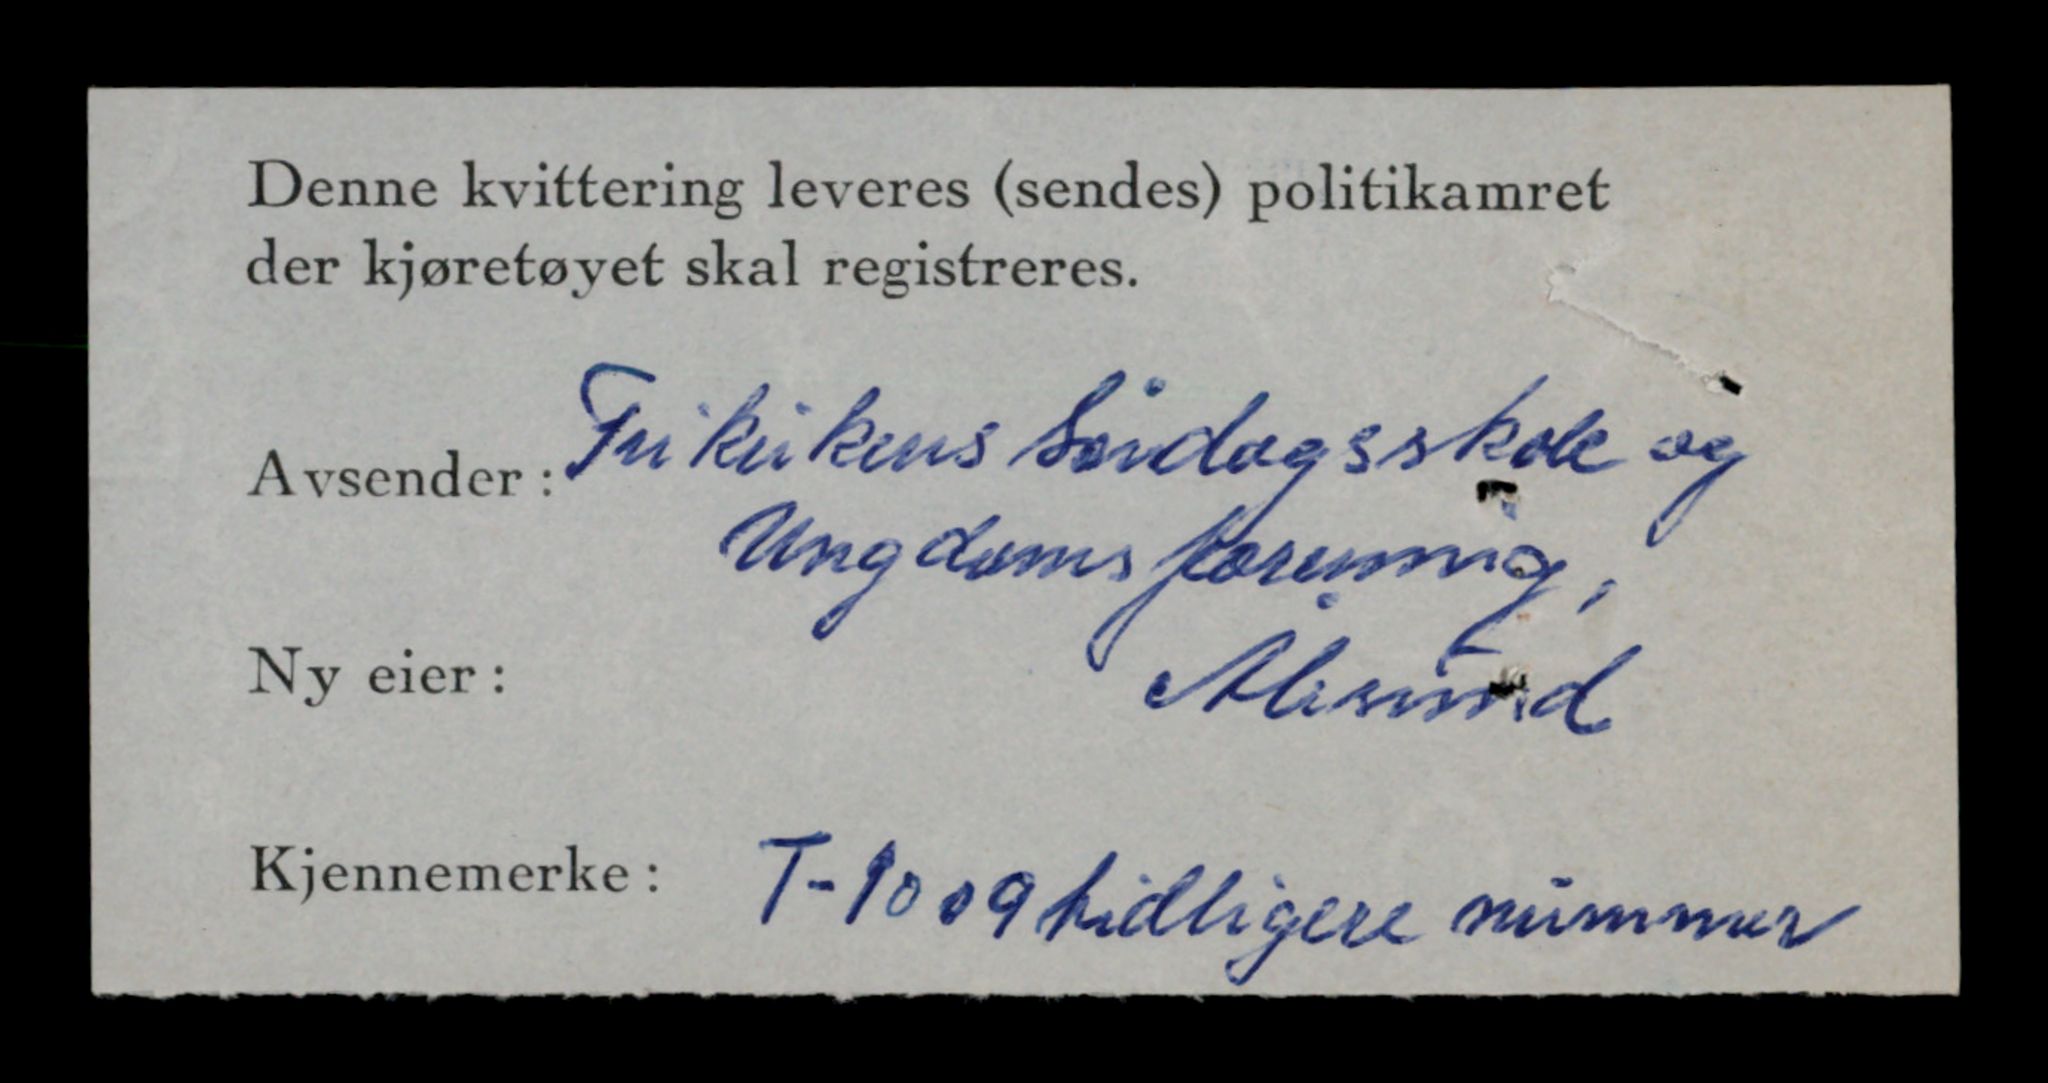 Denne kvittering leveres (sendes) politikamret
der kjøretøyet skal registreres.
Avsender: Frikirkens Søndagsskole og
Ungdomsforening,
Ny eier: Ålesund
Kjennemerke: T-1009 tidligere nummer